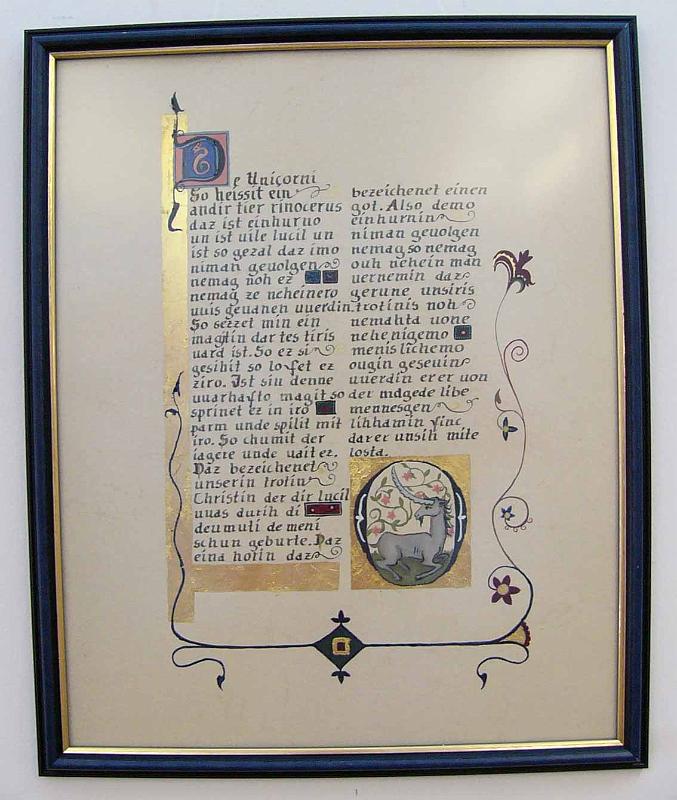 De Unicorni
So heissit ein
andir tier rinocerus
daz ist einhurno
un ist uile lucil un
ist so gezal daz imo
niman geuolgen
nemag noh ez
nemag ze neheinero
uuis geuanen uuerdin.
So sezzet min ein
magitin dar tes tiris
uard ist. So ez si
gesihit so lofet ez
ziro. Ist siu denne
uuarhafto magit so
sprinet ez in iro
parm unde spilit mit
iro. So chumit der
iagere unde uait ez.
Daz bezeichenet
unserin trotin
Christin der dir lucil
uuas durih di
deumuti de meni
schun geburte. Daz
eina horin daz
bezeichenet einen
got. Also demo
einhurnin
niman geuolgen
nemag so nemag
ouh nehein man
uernemin daz
gerune unsiris
trotinis noh
nemahta uone
nehenigemo
menislichemo
ougin geseuin
uuerdin er er uon
der magede libe
mennesgen
lihhamin finc
dar er unsih mite
losta.